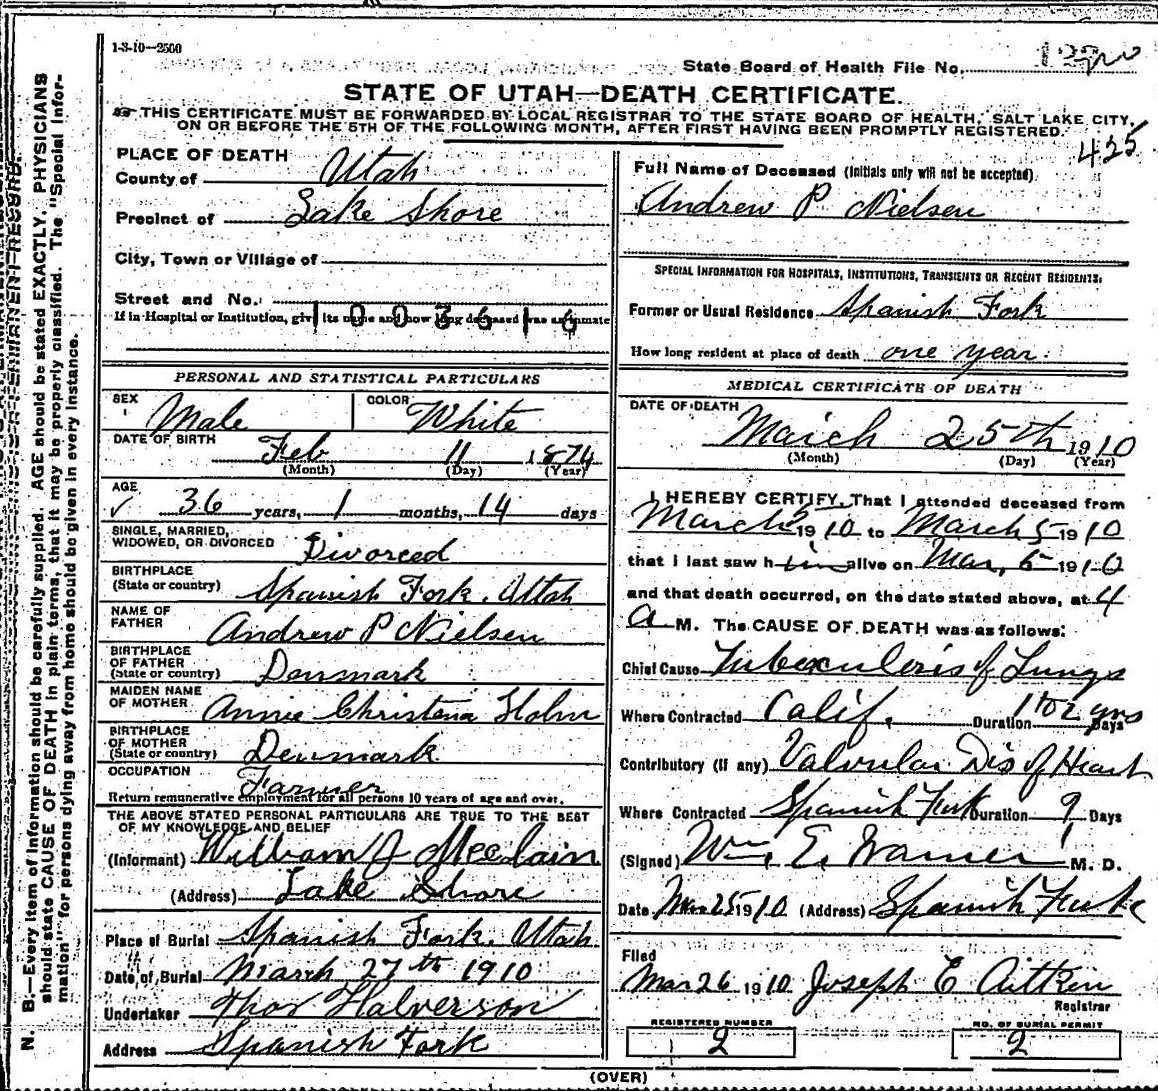 1-3-10—2500
State Board of Health File No.
STATE OF UTAH—DEATH CERTIFICATE.
THIS CERTIFICATE MUST BE FORWARDED BY LOCAL REGISTRAR TO THE STATE BOARD OF HEALTH, SALT LAKE CITY,
ON OR BEFORE THE 5TH OF THE FOLLOWING MONTH, AFTER FIRST HAVING BEEN PROMPTLY REGISTERED.
425
N. B.—Every item of information should be carefully supplied. AGE should be stated EXACTLY. PHYSICIANS
should state CAUSE OF DEATH in plain terms, that it may be properly classified. The "Special Infor-
mation" for persons dying away from home should be given in every instance.
PLACE OF DEATH
County of Utah
Precinct of Lake Shore
City, Town or Village of
Street and No.
1003616
If in Hospital or Institution, give its name and how long deceased was an inmate
PERSONAL AND STATISTICAL PARTICULARS
SEX Male COLOR White
DATE OF BIRTH Feb 11 1874
(Month) (Day) (Year)
AGE 36 years, 1 months, 14 days
SINGLE, MARRIED,
WIDOWED, OR DIVORCED Divorced
BIRTHPLACE
(State or country) Spanish Fork, Utah
NAME OF
FATHER Andrew P Nielsen
BIRTHPLACE
OF FATHER
(State or country) Denmark
MAIDEN NAME
OF MOTHER Annie Christena Holm
BIRTHPLACE
OF MOTHER
(State or country) Denmark
OCCUPATION Farmer
Return remunerative employment for all persons 10 years of age and over.
THE ABOVE STATED PERSONAL PARTICULARS ARE TRUE TO THE BEST
OF MY KNOWLEDGE AND BELIEF
(Informant) William J Mcclain
(Address) Lake Shore
Place of Burial Spanish Fork, Utah
Date of Burial March 27th 1910
Undertaker Thos Halverson
Address Spanish Fork
Full Name of Deceased (Initials only will not be accepted)
Andrew P Nielsen
SPECIAL INFORMATION FOR HOSPITALS, INSTITUTIONS, TRANSIENTS OR RECENT RESIDENTS:
Former or Usual Residence Spanish Fork
How long resident at place of death one year.
MEDICAL CERTIFICATE OF DEATH
DATE OF DEATH
March 25th 1910
(Month) (Day) (Year)
I HEREBY CERTIFY, That I attended deceased from
March 5 1910 to March 5 1910
that I last saw him alive on Mar, 5 1910
and that death occurred, on the date stated above, at 4
a M. The CAUSE OF DEATH was as follows:
Chief Cause Tuberculosis of Lungs
Where Contracted Calif. Duration 1 to 2 yrs Days
Contributory (if any) Valvular Dis of Heart
Where Contracted Spanish Fork Duration 9 Days
(Signed) Wm. E. Warner M. D.
Date Mar 25 1910 (Address) Spanish Fork
Filed
Mar 26 1910 Joseph E Aitken
Registrar
REGISTERED NUMBER NO. OF BURIAL PERMIT
2 2
(OVER)